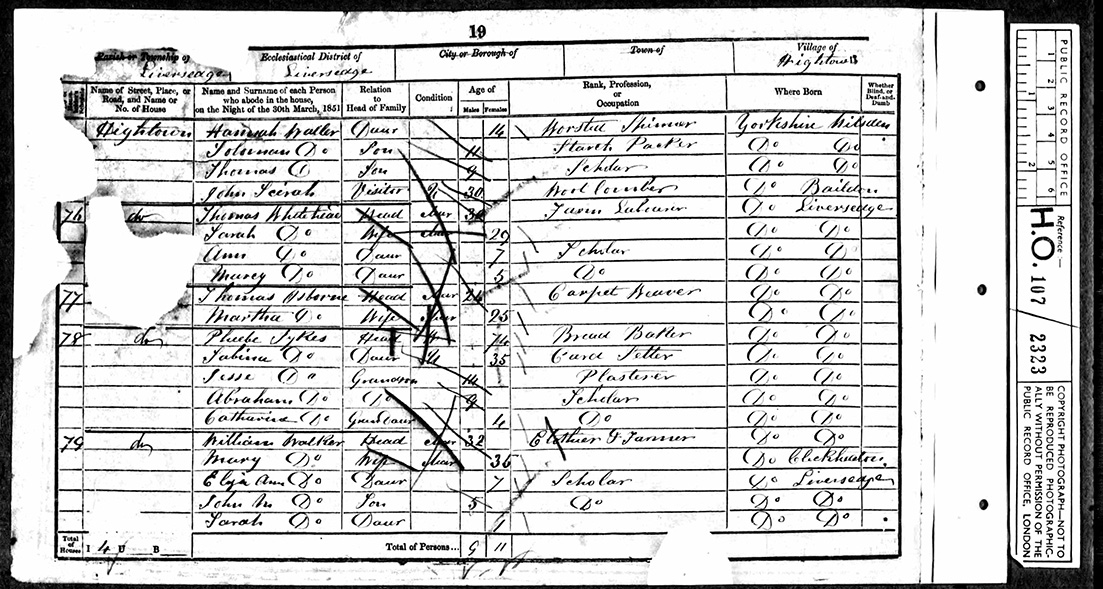 19
Parish or Township of Ecclesiastical District of City or Borough of Town of Village of
Liversedge Liversedge Hightown
Name of Street, Place, or Road, and Name or No. of House Name and Surname of each Person who abode in the house, on the Night of the 30th March, 1851 Relation to Head of Family Condition Age of Males Females Rank, Profession, or Occupation Where Born Whether Blind, or Deaf-and-Dumb
Hightown Hannah Waller Daur 14 Worsted Yorkshire Wilsden
Soloman Do Son 11 Starch Packer Do Do
Thomas Do Son 9 Scholar Do Do
John Visitor 30 Wool Comber Do Baildon
76 do Thomas Whitehead Head Mar 30 Farm Labourer Do Liversedge
Sarah Do Wife Mar 29 Do Do
Ann Do Daur 7 Scholar Do Do
Do Daur 5 Do Do Do
77 Thomas Osborne Head Mar 24 Carpet Weaver Do Do
Martha Do Wife Mar 25 Do Do
78 do Phoebe Sykes Head 74 Bread Baker Do Do
Sabina Do Daur 35 Card Setter Do Do
Jesse Do Grandson 14 Plasterer Do Do
Abraham Do Do 9 Scholar Do Do
Catharine Do Grand Daur 4 Do Do Do
79 do William Walker Head Mar 32 Clothier & Do Do
Mary Do Wife Mar 36 Do Cleckheaton
Eliza Ann Do Daur 7 Scholar Do Liversedge
John Do Son 5 Do Do Do
Sarah Do Daur 1 Do Do
Total of Houses I 4 U B Total of Persons... 9 11
PUBLIC RECORD OFFICE
1 2 3 4 5 6
1 2
Reference:-
H.O. 107 / 2323
COPYRIGHT PHOTOGRAPH—NOT TO BE REPRODUCED PHOTOGRAPHICALLY WITHOUT PERMISSION OF THE PUBLIC RECORD OFFICE, LONDON